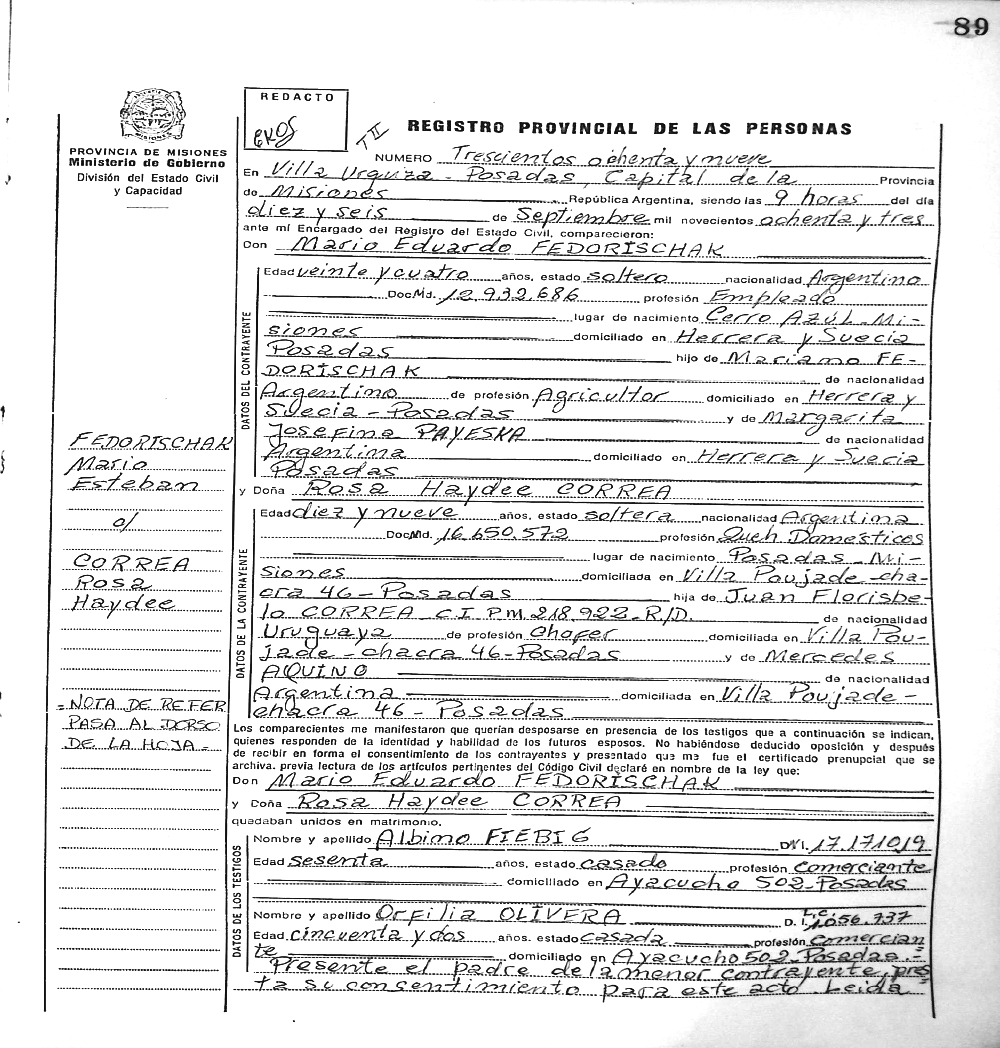 89
REDACTO
PROVINCIA DE MISIONES
Ministerio de Gobierno
División del Estado Civil
y Capacidad
T II
REGISTRO PROVINCIAL DE LAS PERSONAS
NUMERO Trescientos ochenta y nueve
En Villa Urquiza - Posadas, Capital de la Provincia
de Misiones República Argentina, siendo las 9 horas del día
diez y seis de Septiembre mil novecientos ochenta y tres
ante mí Encargado del Registro del Estado Civil, comparecieron:
Don Mario Eduardo FEDORISCHAK
DATOS DEL CONTRAYENTE
Edad veinte y cuatro años, estado soltero nacionalidad Argentino
Doc.Nd. 12.932.686 profesión Empleado
lugar de nacimiento Cerro AZÚL - Mi-
siones domiciliado en Herrera y Suecia
Posadas hijo de Mariano FE-
DORISCHAK de nacionalidad
Argentino de profesión Agricultor domiciliado en Herrera y
Suecia - Posadas y de Margarita
Josefina PAYESKA de nacionalidad
Argentina domiciliado en Herrera y Suecia
Posadas
y Doña Rosa Haydee CORREA
DATOS DE LA CONTRAYENTE
Edad diez y nueve años, estado soltera nacionalidad Argentina
Doc.Nd. 16.650.572 profesión Queh. Domesticos
lugar de nacimiento Posadas - Mi-
siones domiciliada en Villa Poujade - cha-
cra 46 - Posadas hija de Juan Florisbe-
lo CORREA C.I.P.M. 218.922 - R/D. de nacionalidad
Uruguaya de profesión chofer domiciliada en Villa Pou-
jade - chacra 46 - Posadas y de Mercedes
AQUINO de nacionalidad
Argentina domiciliada en Villa Poujade -
chacra 46 - Posadas
Los comparecientes me manifestaron que querían desposarse en presencia de los testigos que a continuación se indican,
quienes responden de la identidad y habilidad de los futuros esposos. No habiéndose deducido oposición y después
de recibir en forma el consentimiento de los contrayentes y presentado que me fue el certificado prenupcial que se
archiva. previa lectura de los artículos pertinentes del Código Civil declaré en nombre de la ley que:
Don Mario Eduardo FEDORISCHAK
y Doña Rosa Haydee CORREA
quedaban unidos en matrimonio.
DATOS DE LOS TESTIGOS
Nombre y apellido Albino FIEBIG DNI. 17.171019
Edad sesenta años, estado casado profesión comerciante
domiciliado en Ayacucho 502 - Posadas
Nombre y apellido Orfilia OLIVERA L.C. D. I. 1.056.737
Edad cincuenta y dos años. estado casada profesión comercian
te domiciliado en Ayacucho 502 - Posadas. =
Presente el padre de la menor contrayente, pres
ta su consentimiento para este acto. Leída
FEDORISCHAK
Mario
Esteban
c/
CORREA
Rosa
Haydee
= NOTA DE REFER
PASA AL DORSO
DE LA HOJA =